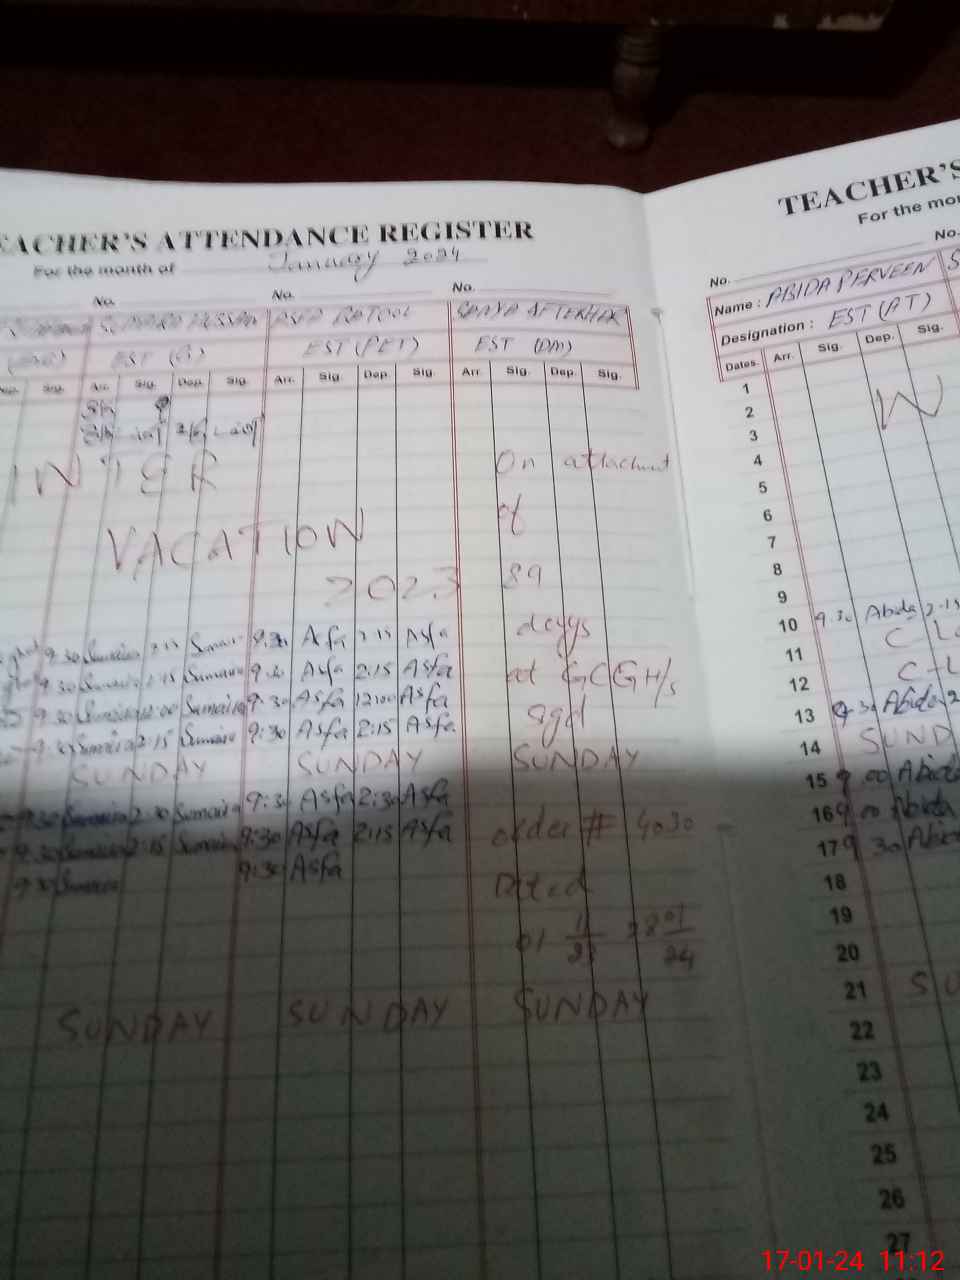 TEACHER'S ATTENDANCE REGISTER
For the month of January 2024
No. No. No.
ASFA BATOOL
EST (PET) EST (DM)
Dep. Sig. Arr. Sig. Dep. Sig. Arr. Sig. Dep. Sig. Arr. Sig. Dep. Sig.
WINTER
VACATION
2023
On attachment
of
89
days
at GCGH/s
Sgd
9:30 Asfa 2:15 Asfa
9:30 Sumaira 2:15 Sumaira 9:30 Asfa 2:15 Asfa
9:30 Sumaira 12:00 Sumaira 9:30 Asfa 12:00 Asfa
9:30 Sumaira 2:15 Sumaira 9:30 Asfa 2:15 Asfa
SUNDAY SUNDAY SUNDAY
9:30 Sumaira 2:30 Sumaira 9:30 Asfa 2:30 Asfa
9:30 Sumaira 2:15 Sumaira 9:30 Asfa 2:15 Asfa
9:30 Sumaira 9:30 Asfa
order # 4030
Dated
SUNDAY SUNDAY SUNDAY
TEACHER'S
For the mon
No. No.
Name : ABIDA PERVEEN
Designation : EST (AT)
Dates. Arr. Sig. Dep. Sig.
1
2 W
3
4
5
6
7
8
9
10 9.30 Abida 2.15
11 C-L
12 C-L
13 9.30 Abida 2
14 SUND
15 9.00 Abida
16 9.00 Abida
17 9.30 Abida
18
19
20
21 SU
22
23
24
25
26
27
17-01-24 11:12